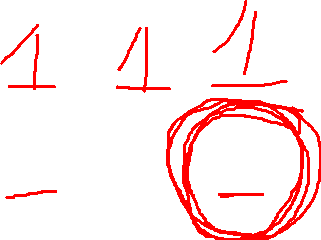 1 1 1
- -